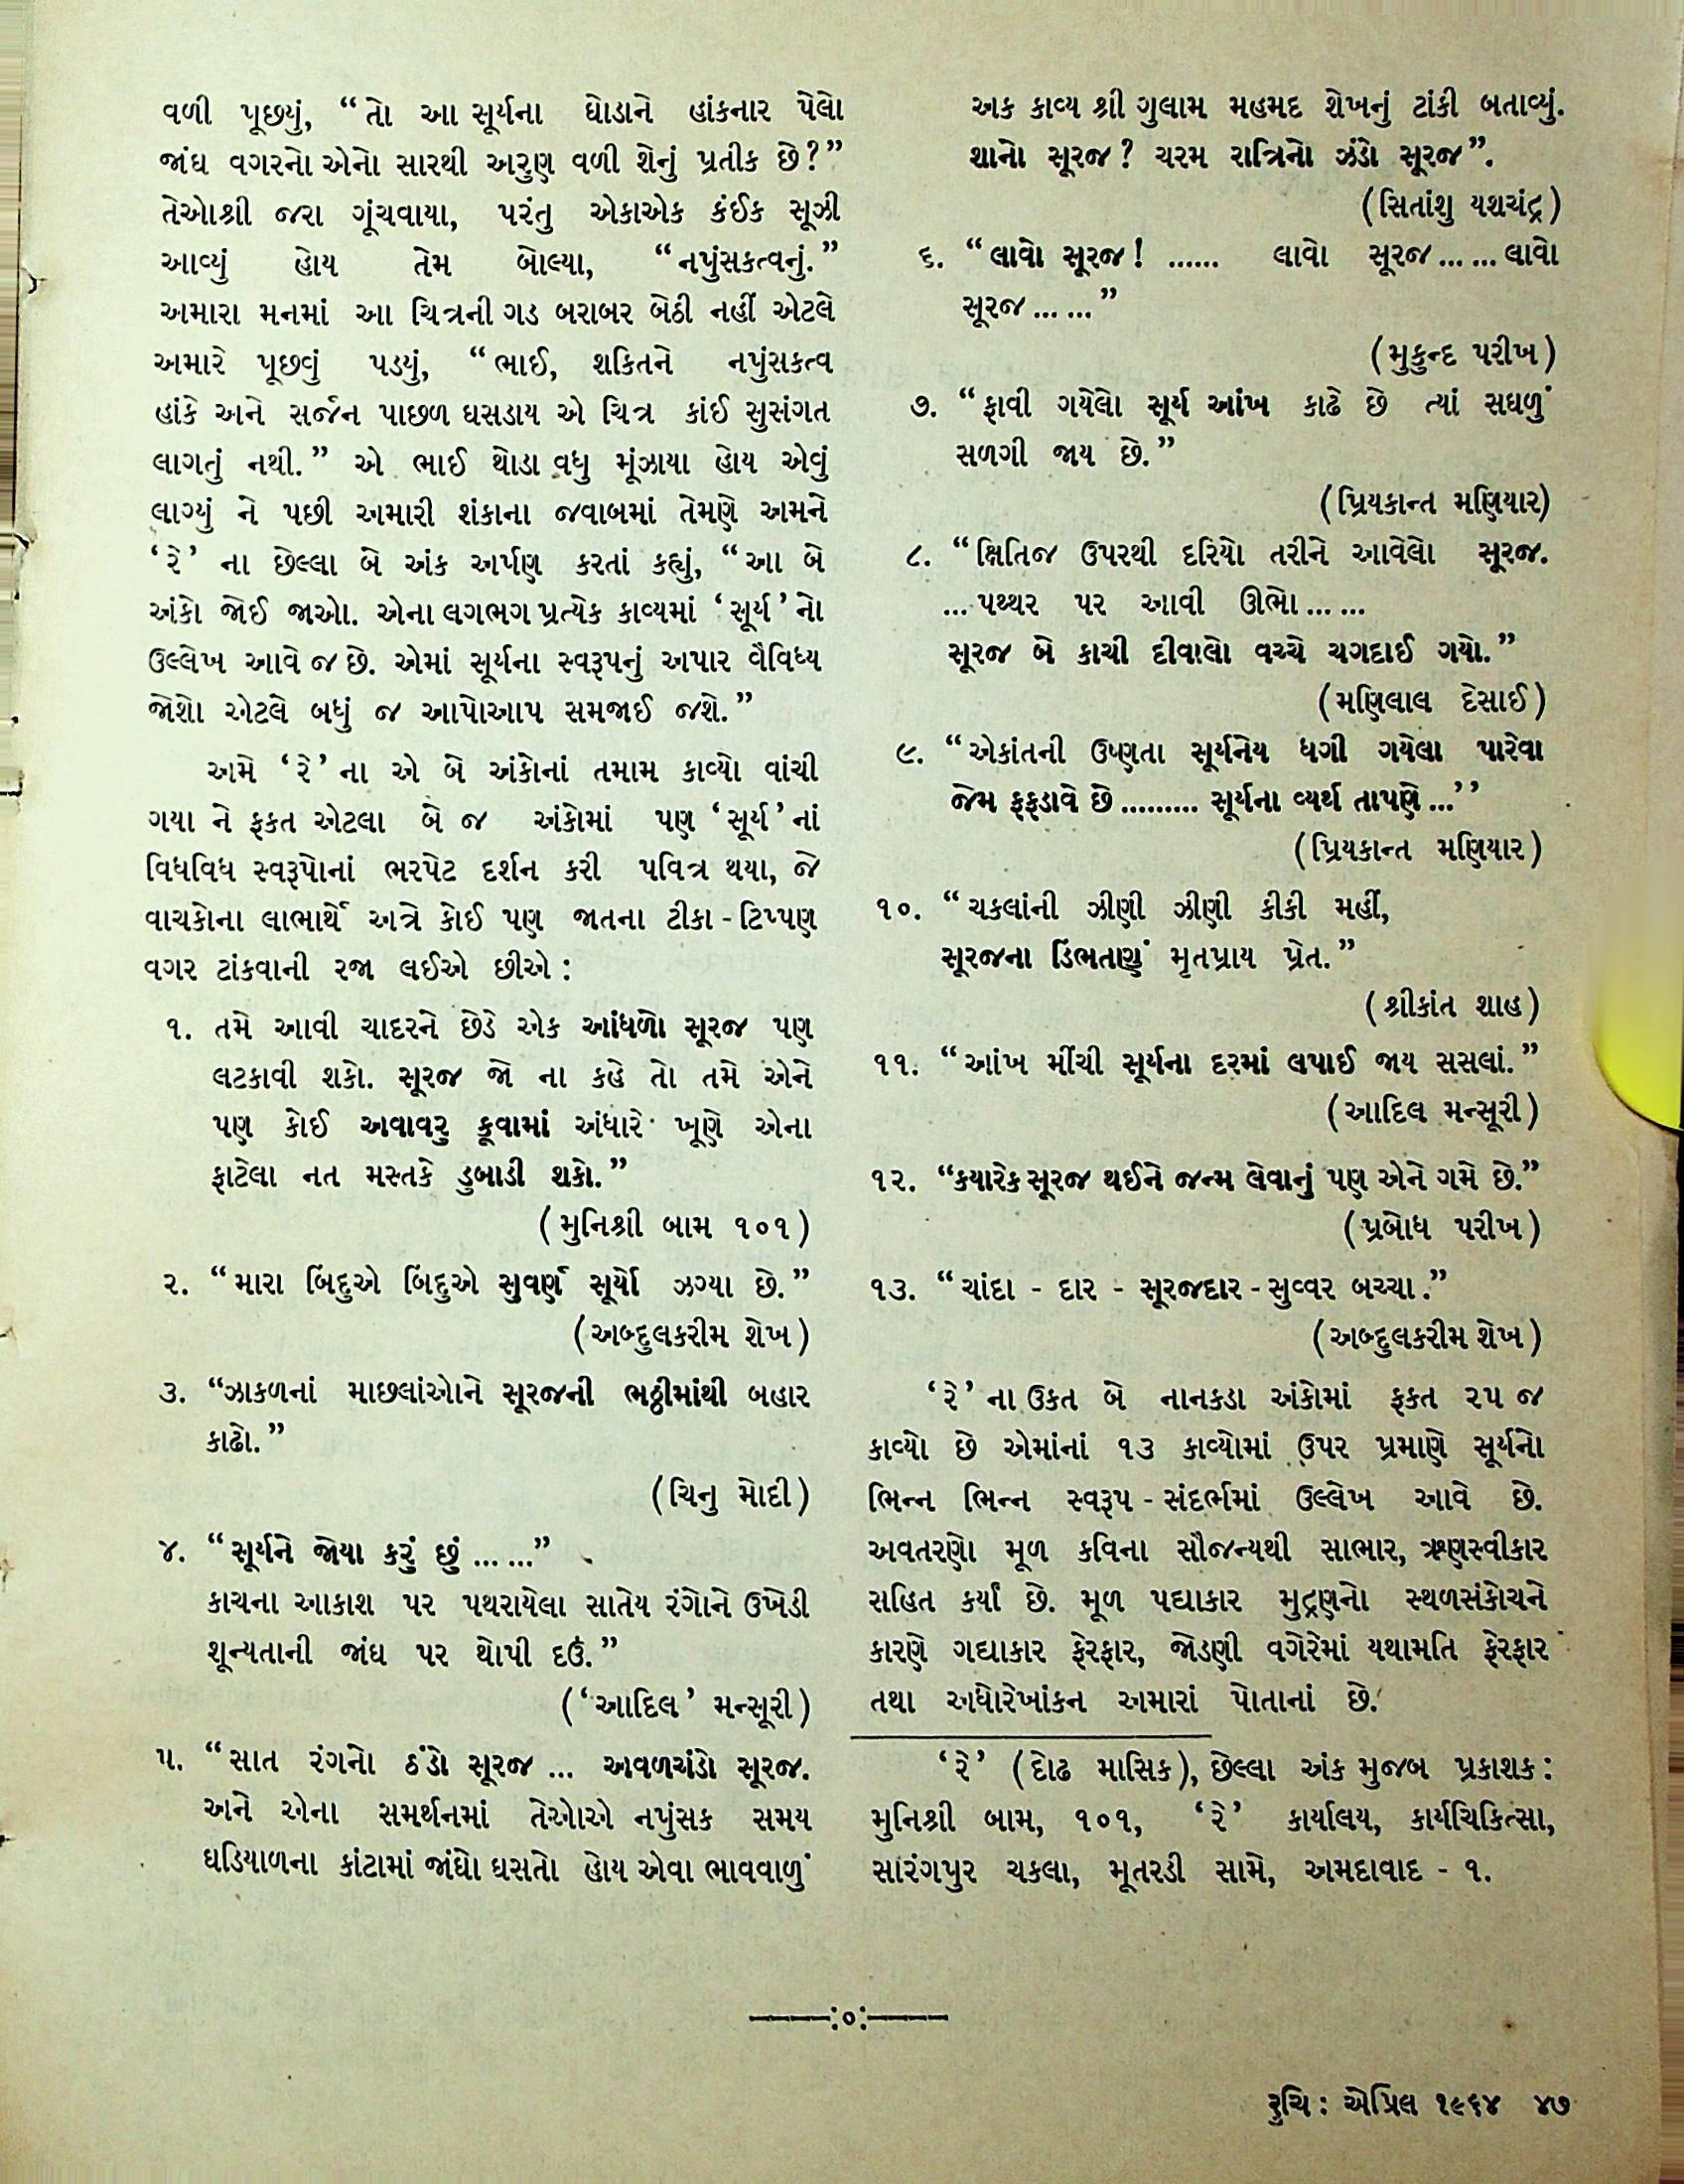 વળી પૂછયું, “તો આ સૂર્યના ઘોડાને હાંકનાર પેલો
જાંઘ વગરનો એનો સારથી અરુણ વળી શેનું પ્રતીક છે?”
તેઓશ્રી જરા ગૂંચવાયા, પરંતુ એકાએક કંઈક સૂઝી
આવ્યું હોય તેમ બોલ્યા, “નપુંસકત્વનું.”
અમારા મનમાં આ ચિત્રની ગડ બરાબર બેઠી નહીં એટલે
અમારે પૂછવું પડયું, “ભાઈ, શકિતને નપુંસકત્વ
હાંકે અને સર્જન પાછળ ઘસડાય એ ચિત્ર કાંઈ સુસંગત
લાગતું નથી.” એ ભાઈ થોડા વધુ મૂંઝાયા હોય એવું
લાગ્યું ને પછી અમારી શંકાના જવાબમાં તેમણે અમને
‘રે’ ના છેલ્લા બે અંક અર્પણ કરતાં કહ્યું, “આ બે
અંકો જોઈ જાઓ. એના લગભગ પ્રત્યેક કાવ્યમાં ‘સૂર્ય’નો
ઉલ્લેખ આવે જ છે. એમાં સૂર્યના સ્વરૂપનું અપાર વૈવિધ્ય
જોશો એટલે બધું જ આપોઆપ સમજાઈ જશે.”
અમે ‘રે’ ના એ બે અંકોનાં તમામ કાવ્યો વાંચી
ગયા ને ફકત એટલા બે જ અંકોમાં પણ ‘સૂર્ય’નાં
વિધવિધ સ્વરૂપોનાં ભરપેટ દર્શન કરી પવિત્ર થયા, જે
વાચકોના લાભાર્થે અત્રે કોઈ પણ જાતના ટીકા - ટિપ્પણ
વગર ટાંકવાની રજા લઈએ છીએ :
૧. તમે આવી ચાદરને છેડે એક આંધળો સૂરજ પણ
લટકાવી શકો. સૂરજ જો ના કહે તો તમે એને
પણ કોઈ અવાવરુ કૂવામાં અંધારે ખૂણે એના
ફાટેલા નત મસ્તકે ડુબાડી શકો.”
(મુનિશ્રી બામ ૧૦૧)
૨. “મારા બિંદુએ બિંદુએ સુવર્ણ સૂર્યો ઝગ્યા છે.”
(અબ્દુલકરીમ શેખ)
૩. “ઝાકળનાં માછલાંઓને સૂરજની ભઠ્ઠીમાંથી બહાર
કાઢો.”
(ચિનુ મોદી)
૪. “સૂર્યને જોયા કરું છું ... ...”
કાચના આકાશ પર પથરાયેલા સાતેય રંગોને ઉખેડી
શૂન્યતાની જાંઘ પર થોપી દઉં.”
(‘આદિલ’ મન્સૂરી)
૫. “સાત રંગનો ઠંડો સૂરજ ... અવળચંડો સૂરજ.
અને એના સમર્થનમાં તેઓએ નપુંસક સમય
ઘડિયાળના કાંટામાં જાંઘો ઘસતો હોય એવા ભાવવાળું
અક કાવ્ય શ્રી ગુલામ મહમદ શેખનું ટાંકી બતાવ્યું.
શાનો સૂરજ? ચરમ રાત્રિનો ઝંડો સૂરજ”.
(સિતાંશુ યશચંદ્ર)
૬. “લાવો સૂરજ! ...... લાવો સૂરજ ... ... લાવો
સૂરજ ... ...”
(મુકુન્દ પરીખ)
૭. “ફાવી ગયેલો સૂર્ય આંખ કાઢે છે ત્યાં સઘળું
સળગી જાય છે.”
(પ્રિયકાન્ત મણિયાર)
૮. “ક્ષિતિજ ઉપરથી દરિયો તરીને આવેલો સૂરજ.
... પથ્થર પર આવી ઊભો ... ...
સૂરજ બે કાચી દીવાલો વચ્ચે ચગદાઈ ગયો.”
(મણિલાલ દેસાઈ)
૯. “એકાંતની ઉષ્ણતા સૂર્યનેય ધગી ગયેલા પારેવા
જેમ ફફડાવે છે ......... સૂર્યના વ્યર્થ તાપણે ...’’
(પ્રિયકાન્ત મણિયાર)
૧૦. “ચકલાંની ઝીણી ઝીણી કીકી મહીં,
સૂરજના ડિંભતાણું મૃતપ્રાય પ્રેત.”
(શ્રીકાંત શાહ)
૧૧. “આંખ મીંચી સૂર્યના દરમાં લપાઈ જાય સસલાં.”
(આદિલ મન્સૂરી)
૧૨. “કયારેક સૂરજ થઈને જન્મ લેવાનું પણ એને ગમે છે.”
(પ્રબોધ પરીખ)
૧૩. “ચાંદા - દાર - સૂરજદાર - સુવ્વર બચ્ચા.”
(અબ્દુલકરીમ શેખ)
‘રે’ ના ઉકત બે નાનકડા અંકોમાં ફકત ૨૫ જ
કાવ્યો છે એમાંનાં ૧૩ કાવ્યોમાં ઉપર પ્રમાણે સૂર્યનો
ભિન્ન ભિન્ન સ્વરૂપ - સંદર્ભમાં ઉલ્લેખ આવે છે.
અવતરણો મૂળ કવિના સૌજન્યથી સાભાર, ઋણસ્વીકાર
સહિત કર્યાં છે. મૂળ પદ્યાકાર મુદ્રણનો સ્થળસંકોચને
કારણે ગદ્યાકાર ફેરફાર, જોડણી વગેરેમાં યથામતિ ફેરફાર
તથા અધોરેખાંકન અમારાં પોતાનાં છે.
‘રે’ (દોઢ માસિક), છેલ્લા અંક મુજબ પ્રકાશક :
મુનિશ્રી બામ, ૧૦૧, ‘રે’ કાર્યાલય, કાર્યચિકિત્સા,
સારંગપુર ચકલા, મૂતરડી સામે, અમદાવાદ - ૧.
———:૦:———
રુચિ : એપ્રિલ ૧૯૬૪ ૪૭